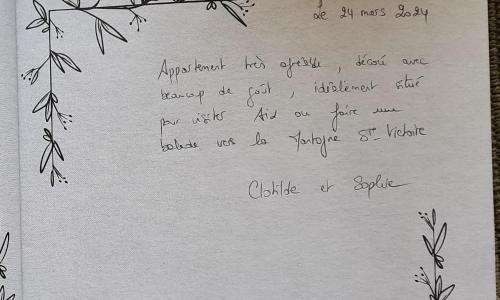 Le 24 mars 2024
Appartement très agréable, décoré avec
beaucoup de goût, idéalement situé
pour visiter Aix ou faire une
balade vers la Montagne Ste Victoire
Clotilde et Sophie